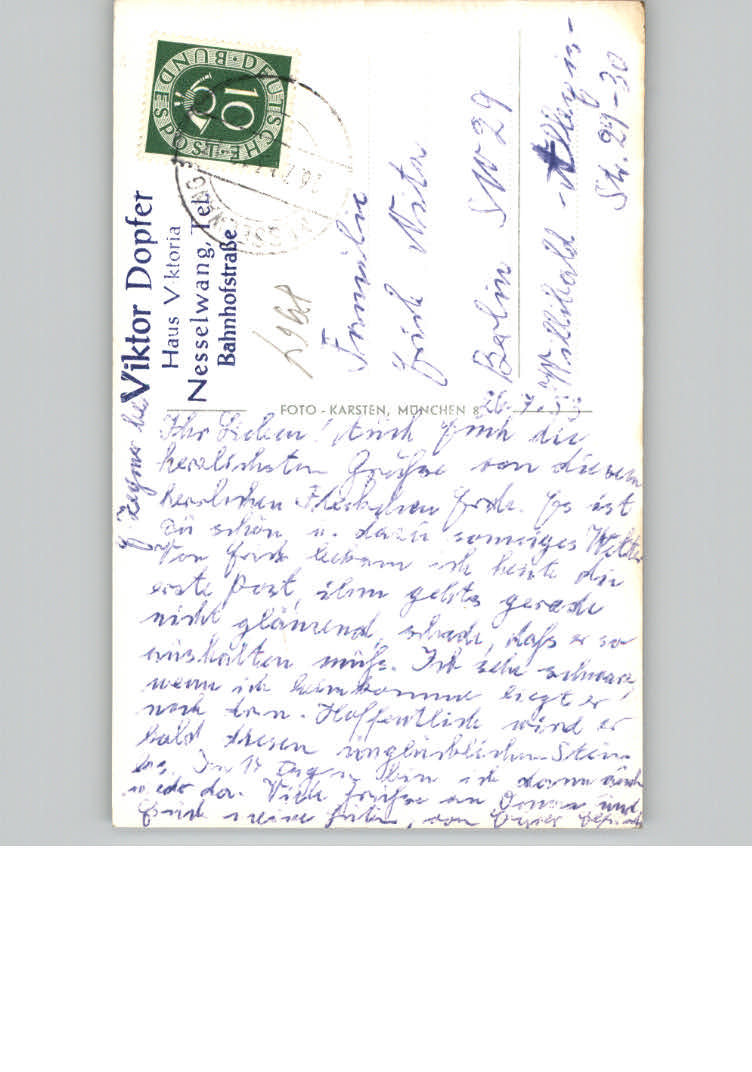 DEUTSCHE BUNDESPOST
10
NESSELWANG
Viktor Dopfer
Haus Viktoria
Nesselwang, Tel.
Bahnhofstraße
Familie
Erich Nita
Berlin SW 29
Willibald-Alexis-
Str. 29-30
FOTO-KARSTEN, MÜNCHEN 8
Ihr Lieben! Auch Euch die
herzlichsten Grüße von diesem
herrlichen Fleckchen Erde. Es ist
zu schön u. dazu sonniges Wetter
Von Erich bekam ich heute die
erste Post, ihm gehts gerade
nicht glänzend, schade, daß er so
aushalten muß. Ich sehe schwarz,
wenn ich heimkomme liegt er
noch dran. Hoffentlich wird er
bald diesen unglücklichen Stein
los. In 14 Tagen bin ich dann auch
wieder da. Viele Grüße an Omma und
Euch meine Guten, von